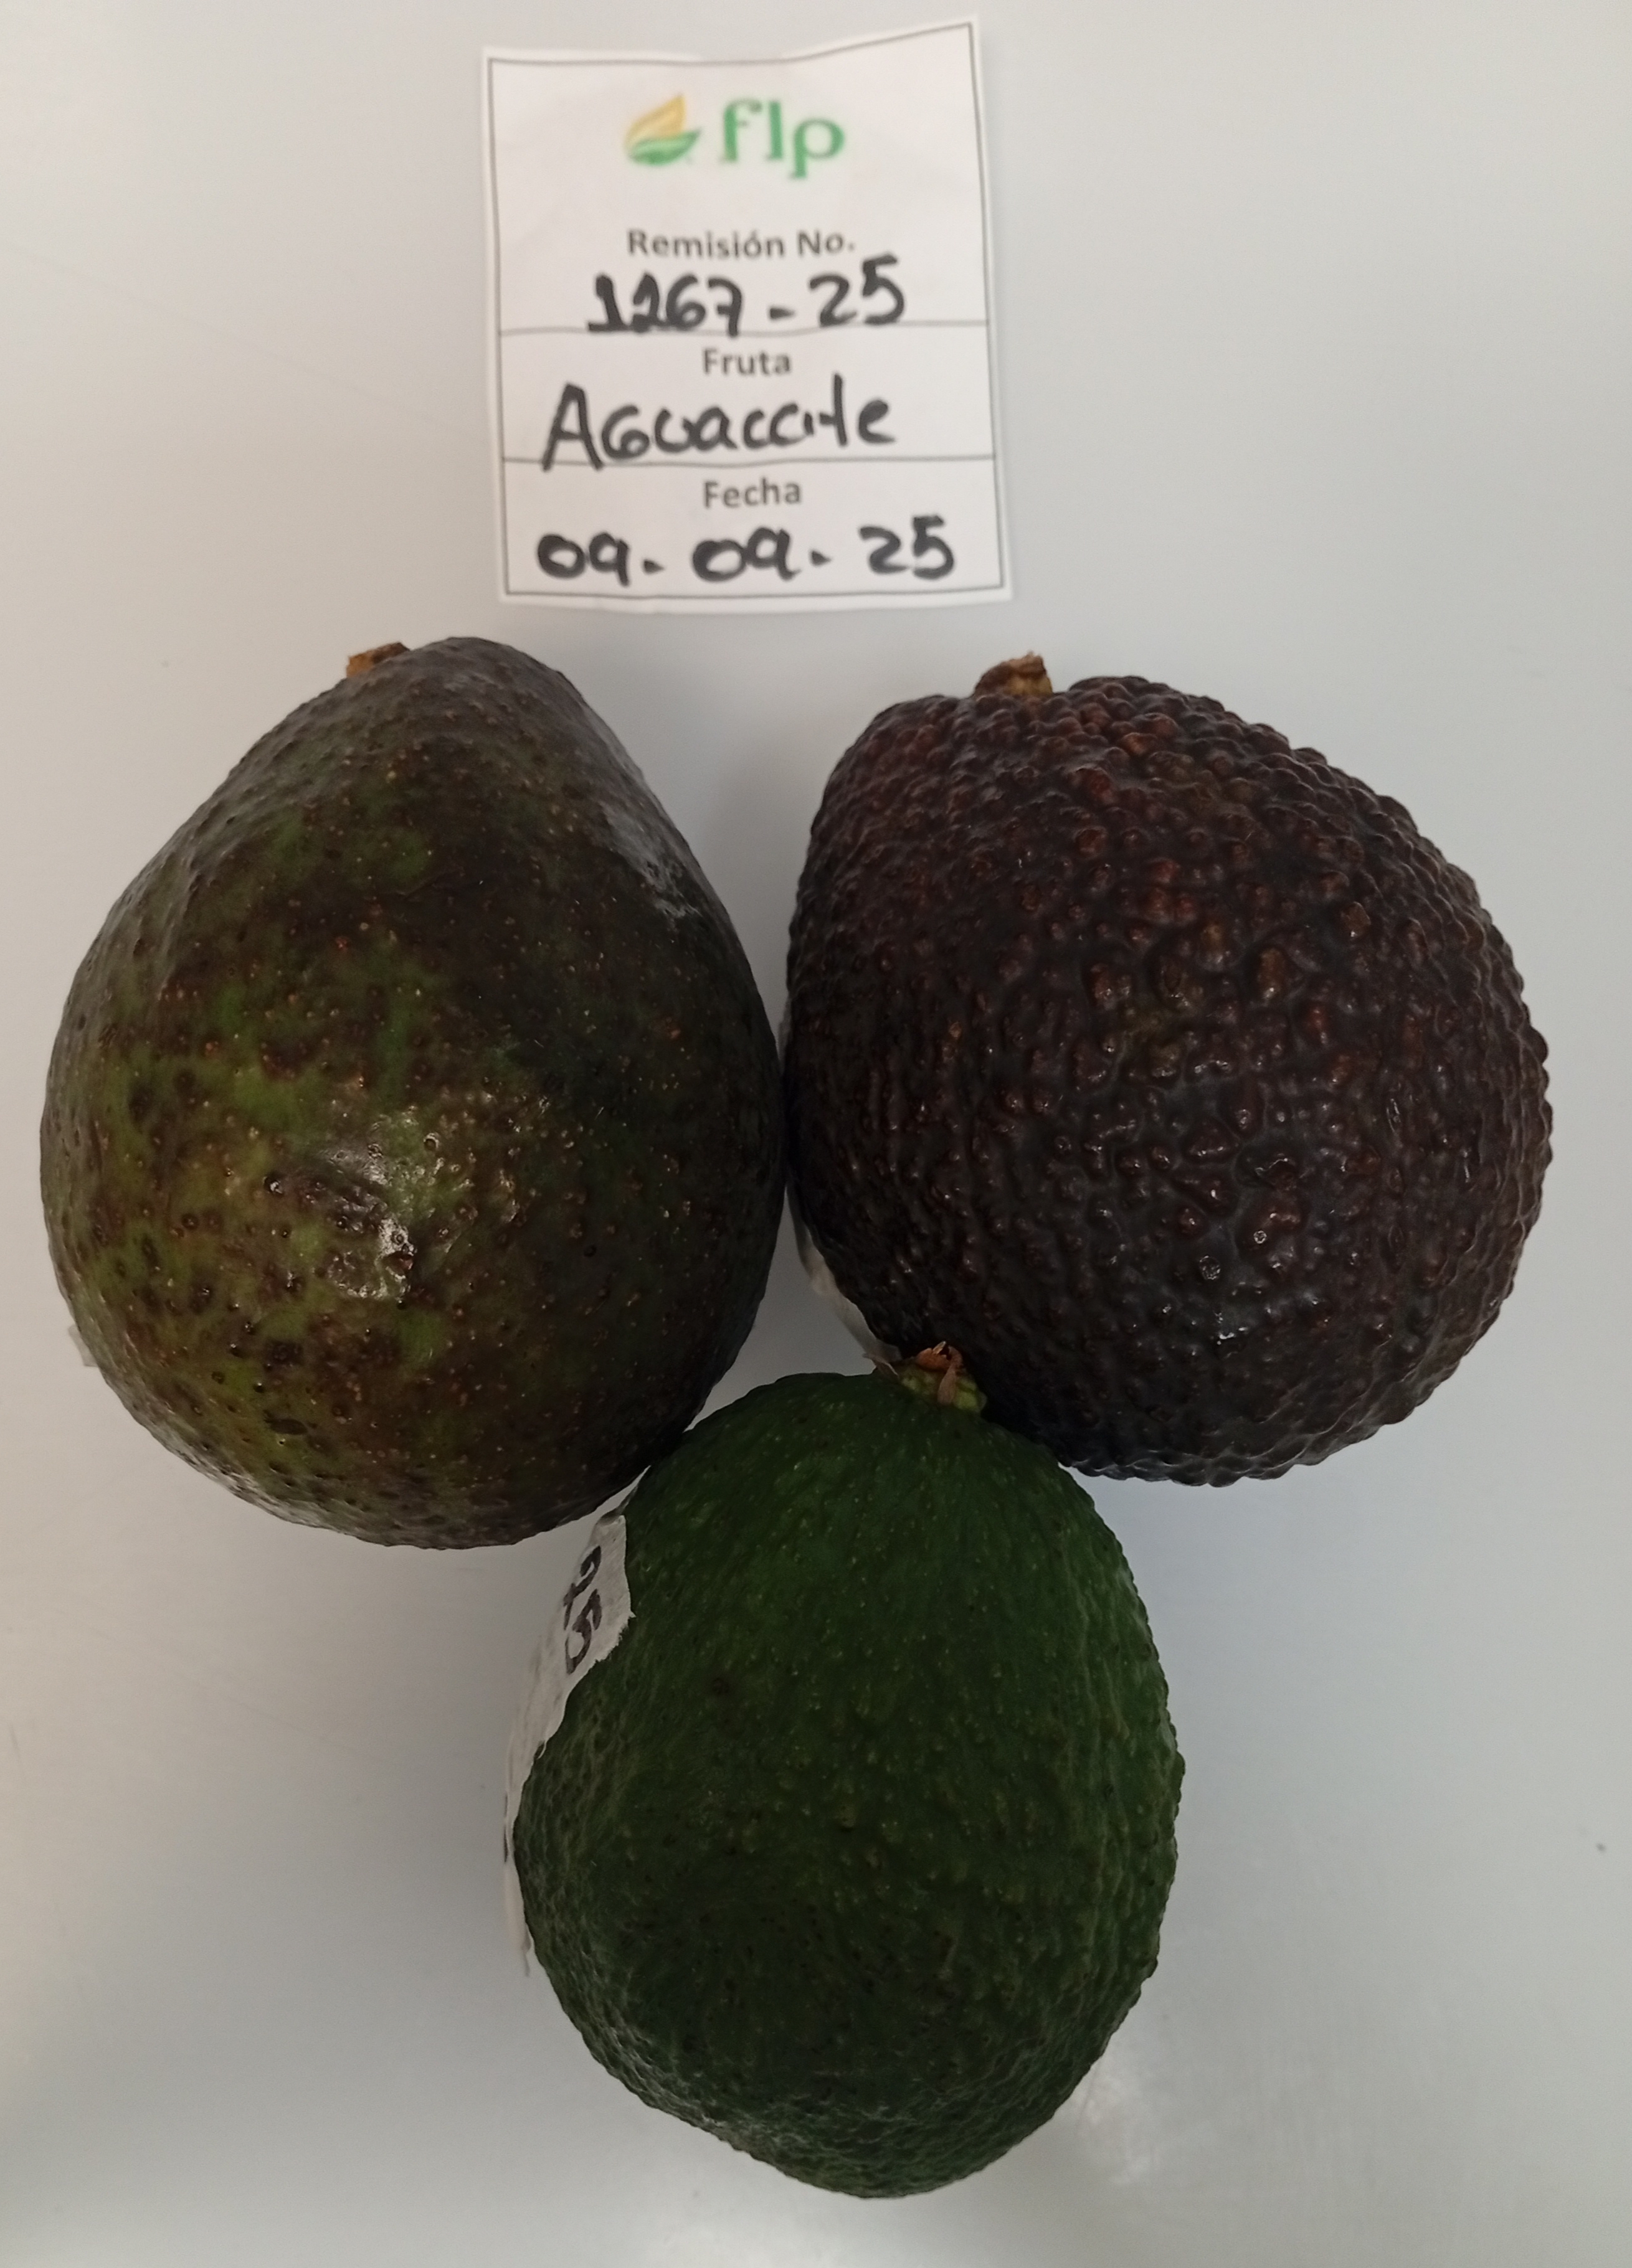 flp
Remisión No.
1267-25
Fruta
Aguacate
Fecha
09-09-25
25